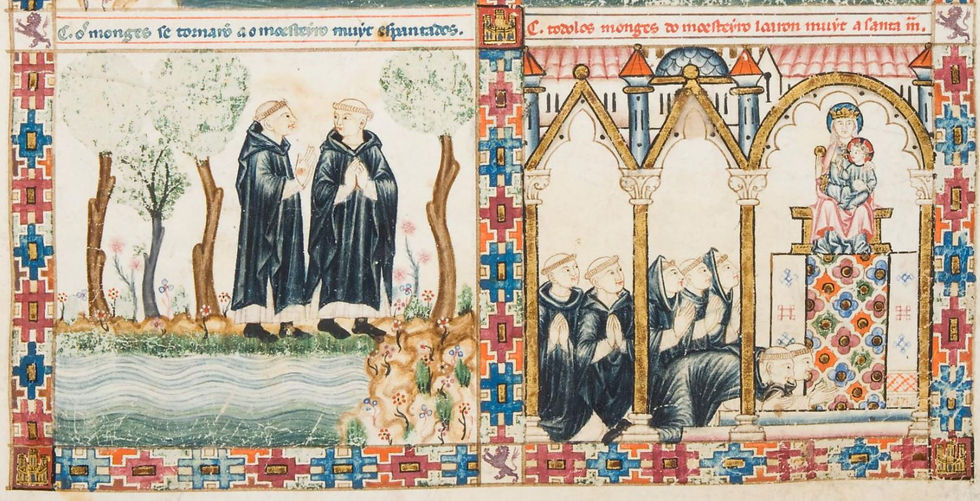 C. o monges se tornarō a o moesteyro muyt espantados.
C. todolos monges do moesteyro loaron muyt a santa m̄.